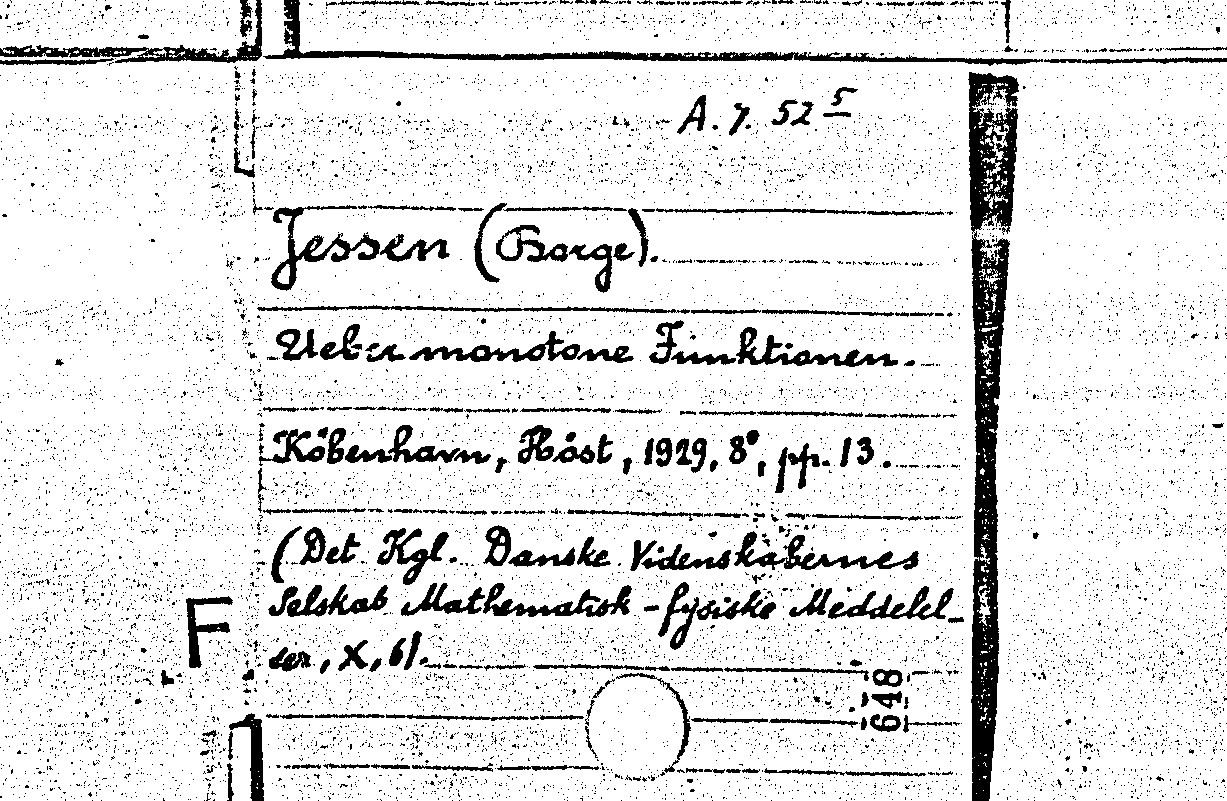 A. 7. 52 5
Jessen (Borge).
Ueber monotone Funktionen.
Köbenhavn, Höst, 1929, 8°, pp. 13.
(Det Kgl. Danske Videnskabernes
Selskab Mathematisk-fysiske Meddelel-
ser, X, 6).
F
648